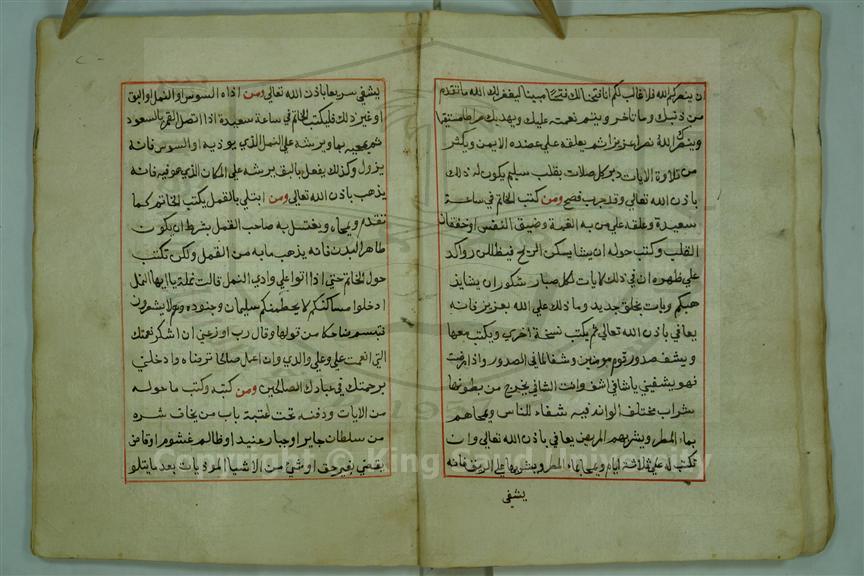 ان ينصركم الله فلا غالب لكم انا فتحنا لك فتحا مبينا ليغفر لك الله ما تقدم
من ذنبك وما تأخر ويتم نعمته عليك ويهديك صراطا مستقيما
وينصرك الله نصرا عزيزا ثم يعلقه على عضده الايمن ويكثر
من تلاوة الايات دبر كل صلات بقلب سليم يكون له ذلك
باذن الله تعالى وقد جرب فصح ومن كتب الخاتم في ساعة
سعيدة وعلقه على من به الغمة وضيق النفس او خفقان
القلب وكتب حوله ان يشا يسكن الريح فيظللن رواكد
على ظهره ان في ذلك لايات لكل صبار شكور ان يشا يذ
هبكم ويات بخلق جديد وما ذلك على الله بعزيز فانه
يعافي باذن الله تعالى ثم يكتب نسخة اخرى ويكتب معها
ويشف صدور قوم مومنين وشفا لما في الصدور واذا مرضت
فهو يشفيني يا شافي اشف وانت الشافي يخرج من بطونها
شراب مختلف الوانه فيه شفاء للناس ويمحاهم
بماء المطر ويشربهم المريض يعافى باذن الله تعالى وان
تكتب له على ثلاثة ايام ويمحا بماء المطر ويشربها على الريق فانه
يشفى
يشفى سريعا باذن الله تعالى ومن اذاه السوس او النمل او البق
او غير ذلك فليكتب الخاتم في ساعة سعيدة اذا اتصل القمر بالسعود
ثم يمحيه بما ويرشه على النمل الذي يوذيه او السوس فانه
يزول وكذلك يفعل بالبق يرشه على المكان الذي هو فيه فانه
يذهب باذن الله تعالى ومن ابتلي بالقمل يكتب الخاتم كما
تقدم ويمحاه ويغتسل به صاحب القمل بشرط ان يكون
طاهر البدن فانه يذهب ما به من القمل ولكن تكتب
حول الخاتم حتى اذا اتوا على وادي النمل قالت نملة يا ايها النمل
ادخلوا مساكنكم لا يحطمنكم سليمان وجنوده وهم لا يشعرون
فتبسم ضاحكا من قولها وقال رب اوزعني ان اشكر نعمتك
التي انعمت علي وعلى والدي وان اعمل صالحا ترضاه وادخلني
برحمتك في عبادك الصالحين ومن كتبه وكتب ما حوله
من الايات ودفنه تحت عتبة باب من يخاف شره
من سلطان جاير او جبار عنيد او ظالم غشوم او قاض
يقضي بغير حق او شي من الاشيا الموذيات بعد ما يتلو
Copyright © King Saud University